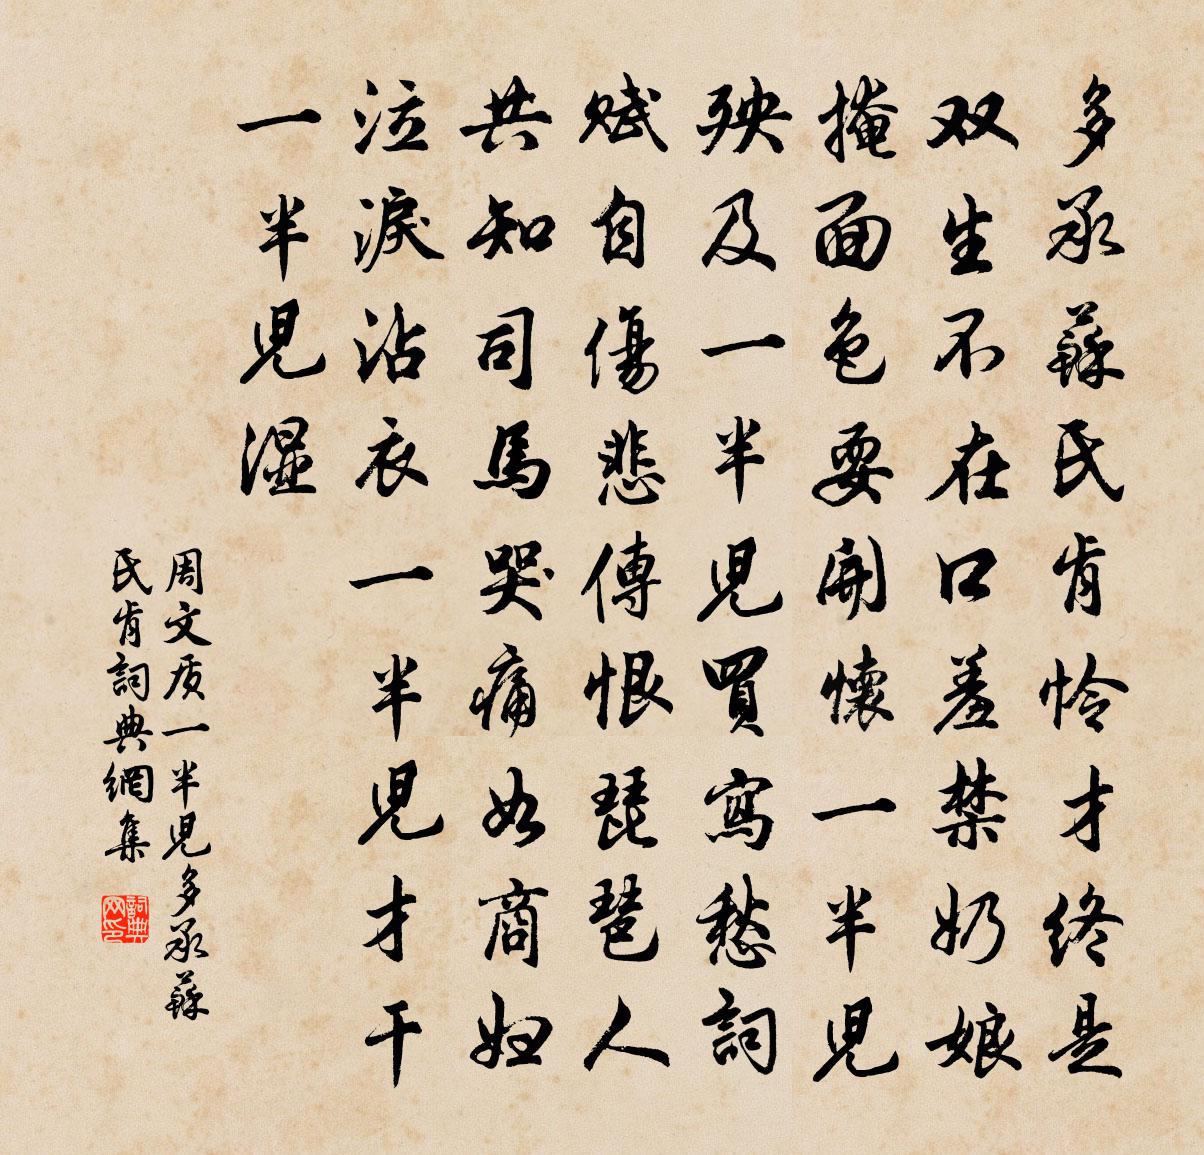 多承蘇氏肯怜才終是
双生不在口羞禁奶娘
掩面色耍開懷一半兒
殃及一半兒買寫愁詞
賦自傷悲傳恨琵琶人
共知司馬哭痛如商婦
泣淚沾衣一半兒才干
一半兒濕
周文质一半兒多承蘇
氏肯詞典網集
詞典
网印